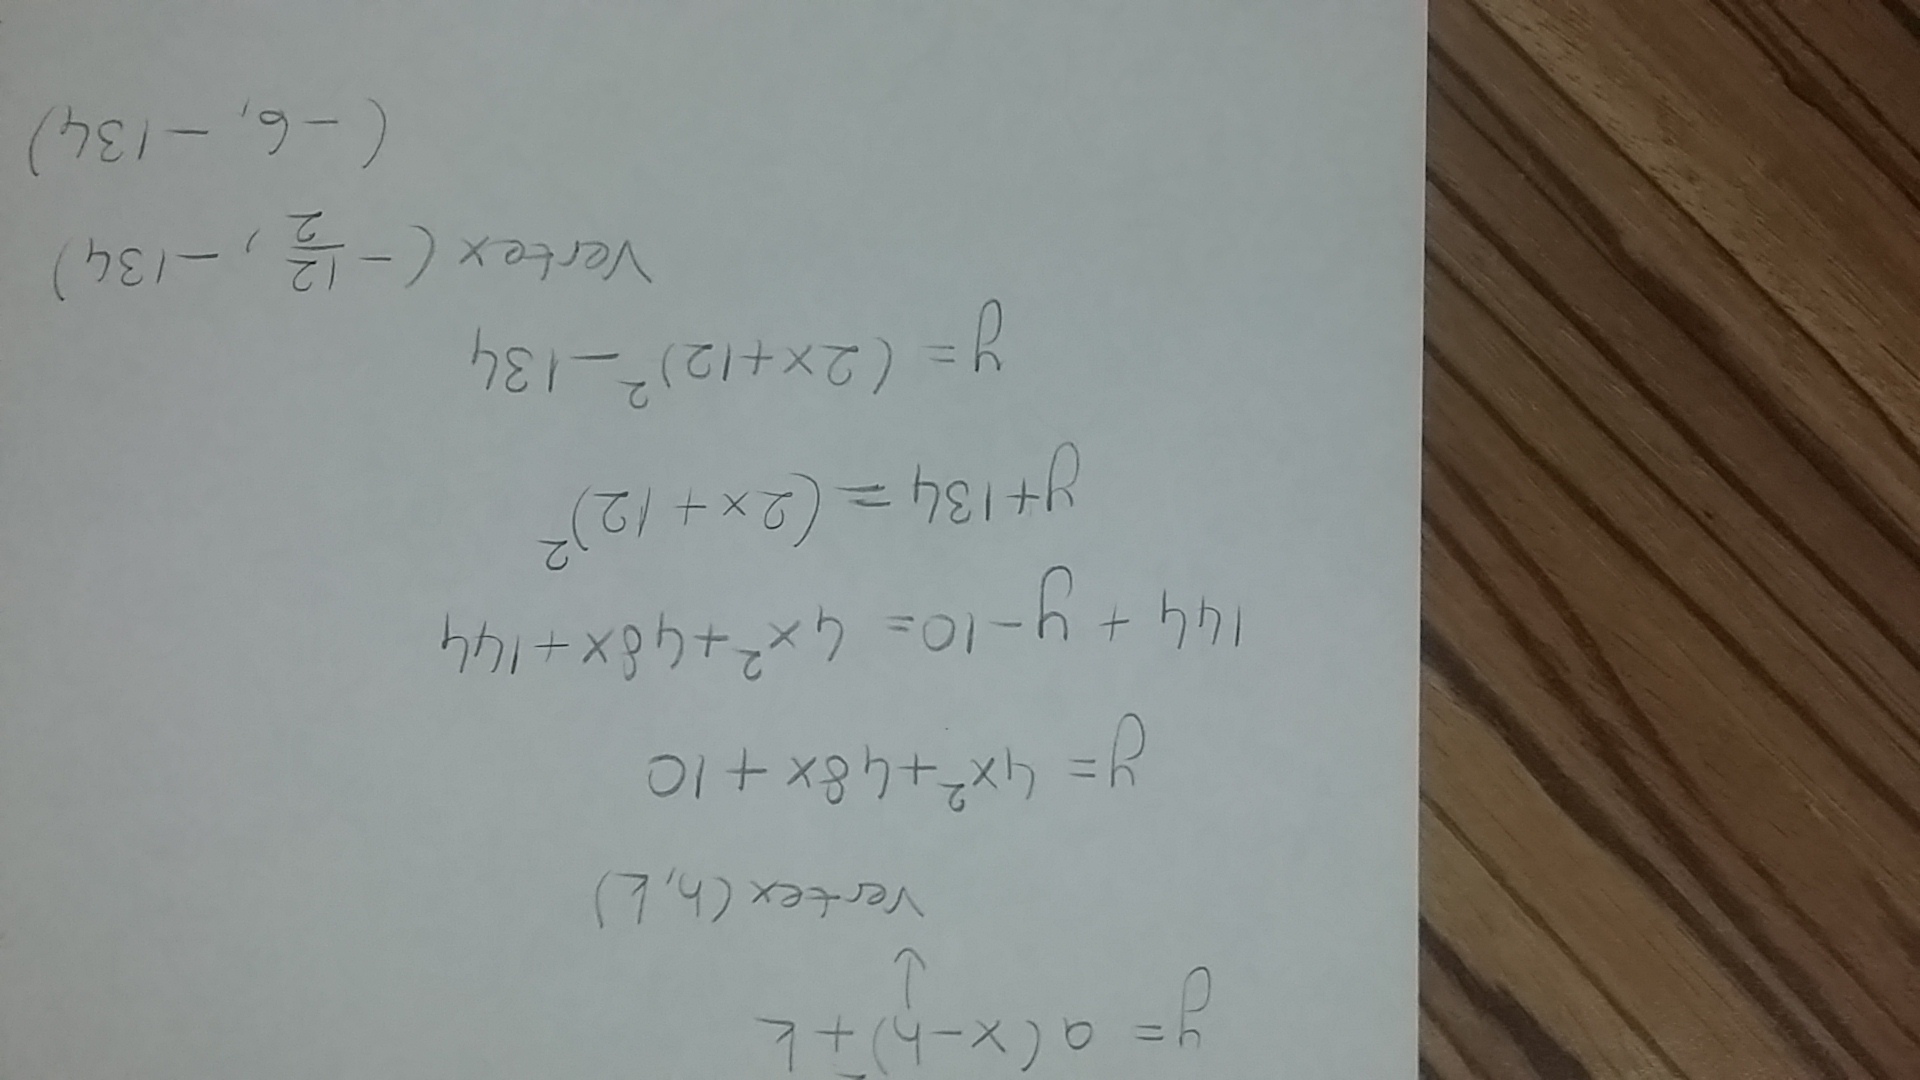 y = a(x-h)² + k
↓
vertex (h, k)
y = 4x² + 48x + 10
144 + y - 10 = 4x² + 48x + 144
y + 134 = (2x + 12)²
y = (2x + 12)² - 134
Vertex (-12/2, -134)
(-6, -134)